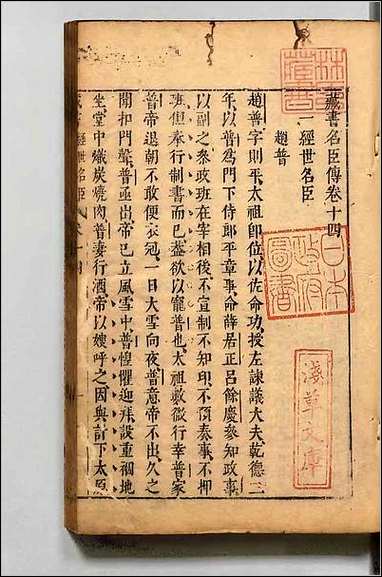 藏書名臣傳卷十四
一經世名臣
趙普
趙普字則平太祖卽位以佐命功授左諫議大夫乾德二
年以普爲門下侍郎平章事命薛居正呂餘慶參知政事
以副之參政班在宰相後不宣制不知印不預奏事不押
班但奉行制書而已蓋欲以寵普也太祖數微行幸普家
普帝退朝不敢便衣冠一日大雪向夜普意帝不出久之
開扣門聲普亟出帝已立風雪中普惶懼迎拜設重裀地
坐堂中熾炭燒肉普妻行酒帝以嫂呼之因與計下太原
日本
政府
圖書
淺草文庫
林氏
藏書